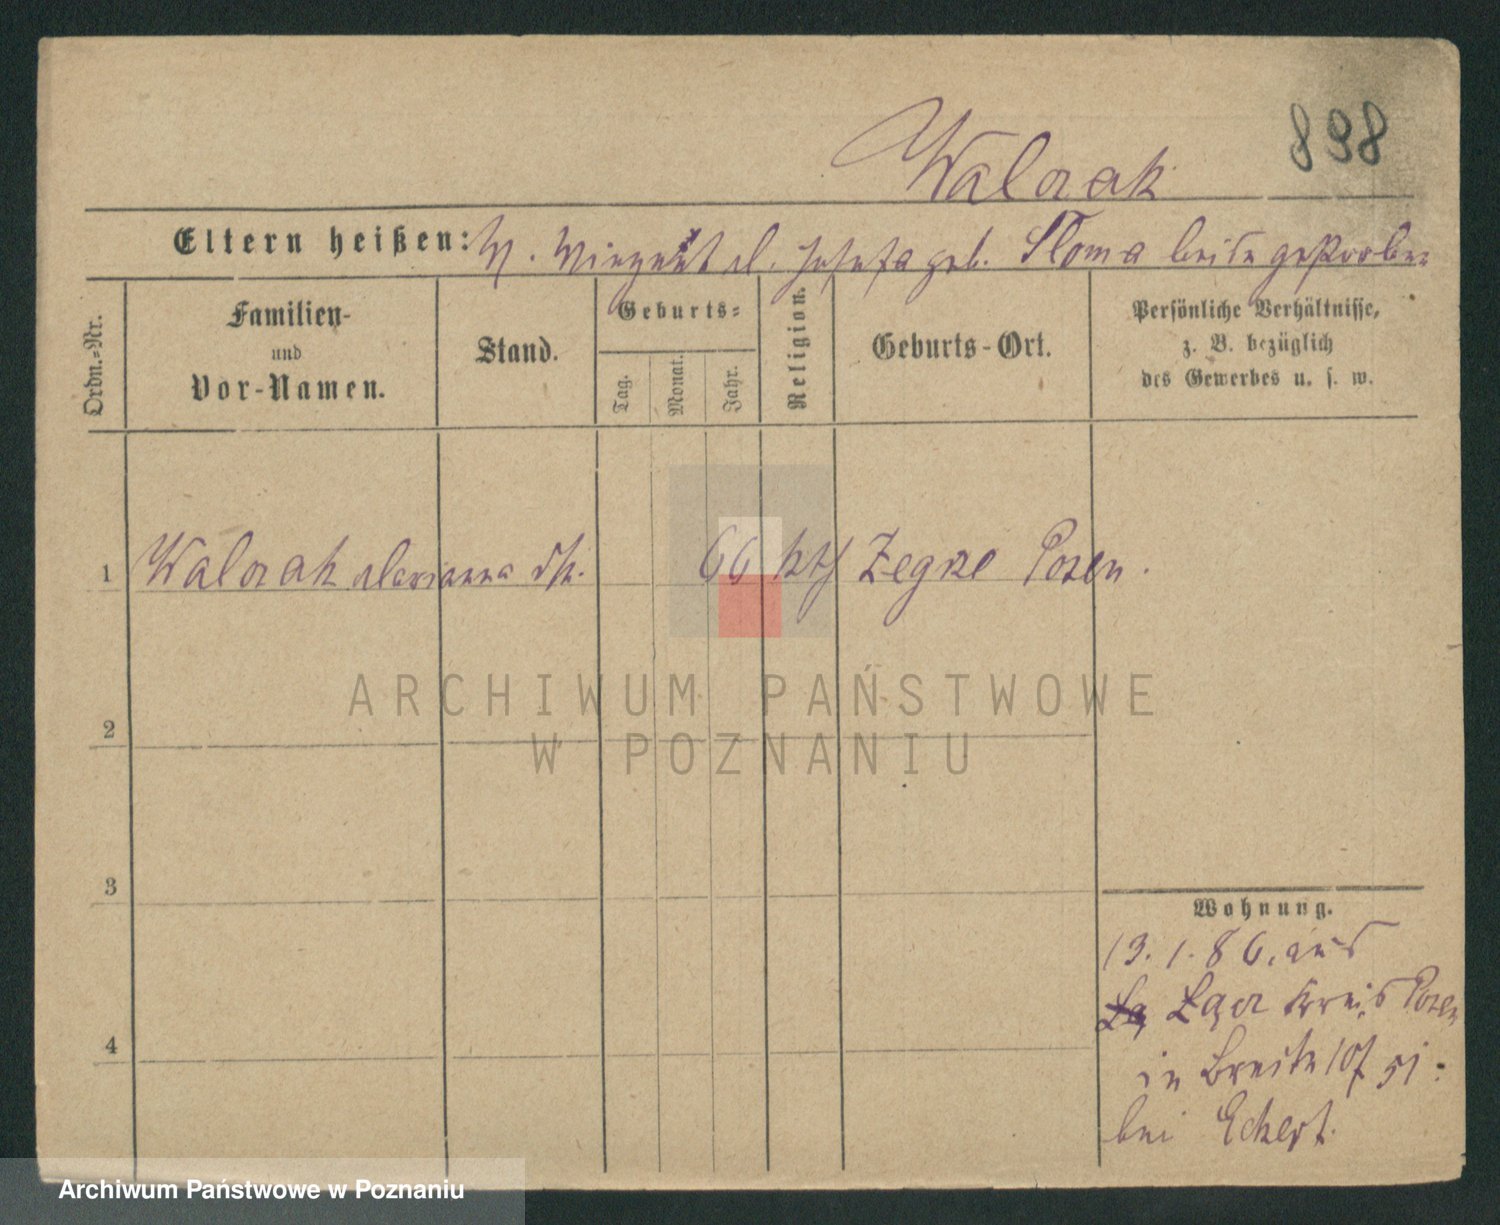 898
Walczak
Eltern heißen: V. Vinzent M. Josefa geb. Sloma beide gestorben
Ordn.-Nr.
Familien-
und
Vor-Namen.
Stand.
Geburts-
Tag.
Monat.
Jahr.
Religion.
Geburts-Ort.
Persönliche Verhältnisse,
z. B. bezüglich
des Gewerbes u. s. w.
1 Walczak Marianna 66 kth Zegrze Posen.
2
3
4
Wohnung.
13. 1. 86. aus
Kreis Posen
in Breite
bei Eckert.
ARCHIWUM PAŃSTWOWE
W POZNANIU
Archiwum Państwowe w Poznaniu